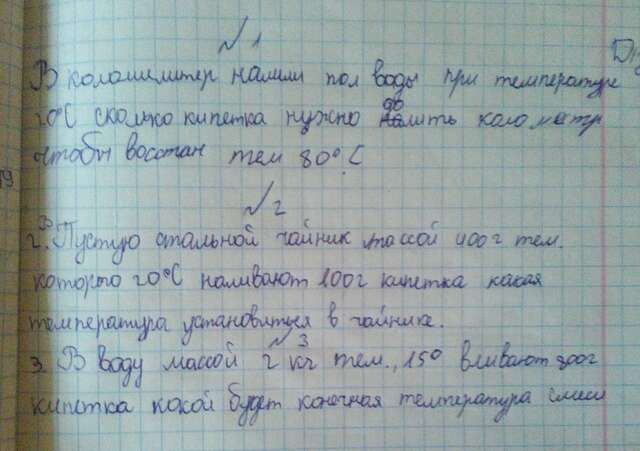 №1
В колошимитер налили пол воды при температуре
20°С сколько кипетка нужно долить калометр
чтобы восстан тем 80°С
№2
2. Пустую стальной чайник массой 400г тем.
которого 20°С наливают 100г кипетка какая
температура установиться в чайнике.
№3
3. В воду массой 2 кг тем., 15° вливают 800г
кипетка какой будет конечная температура смеси